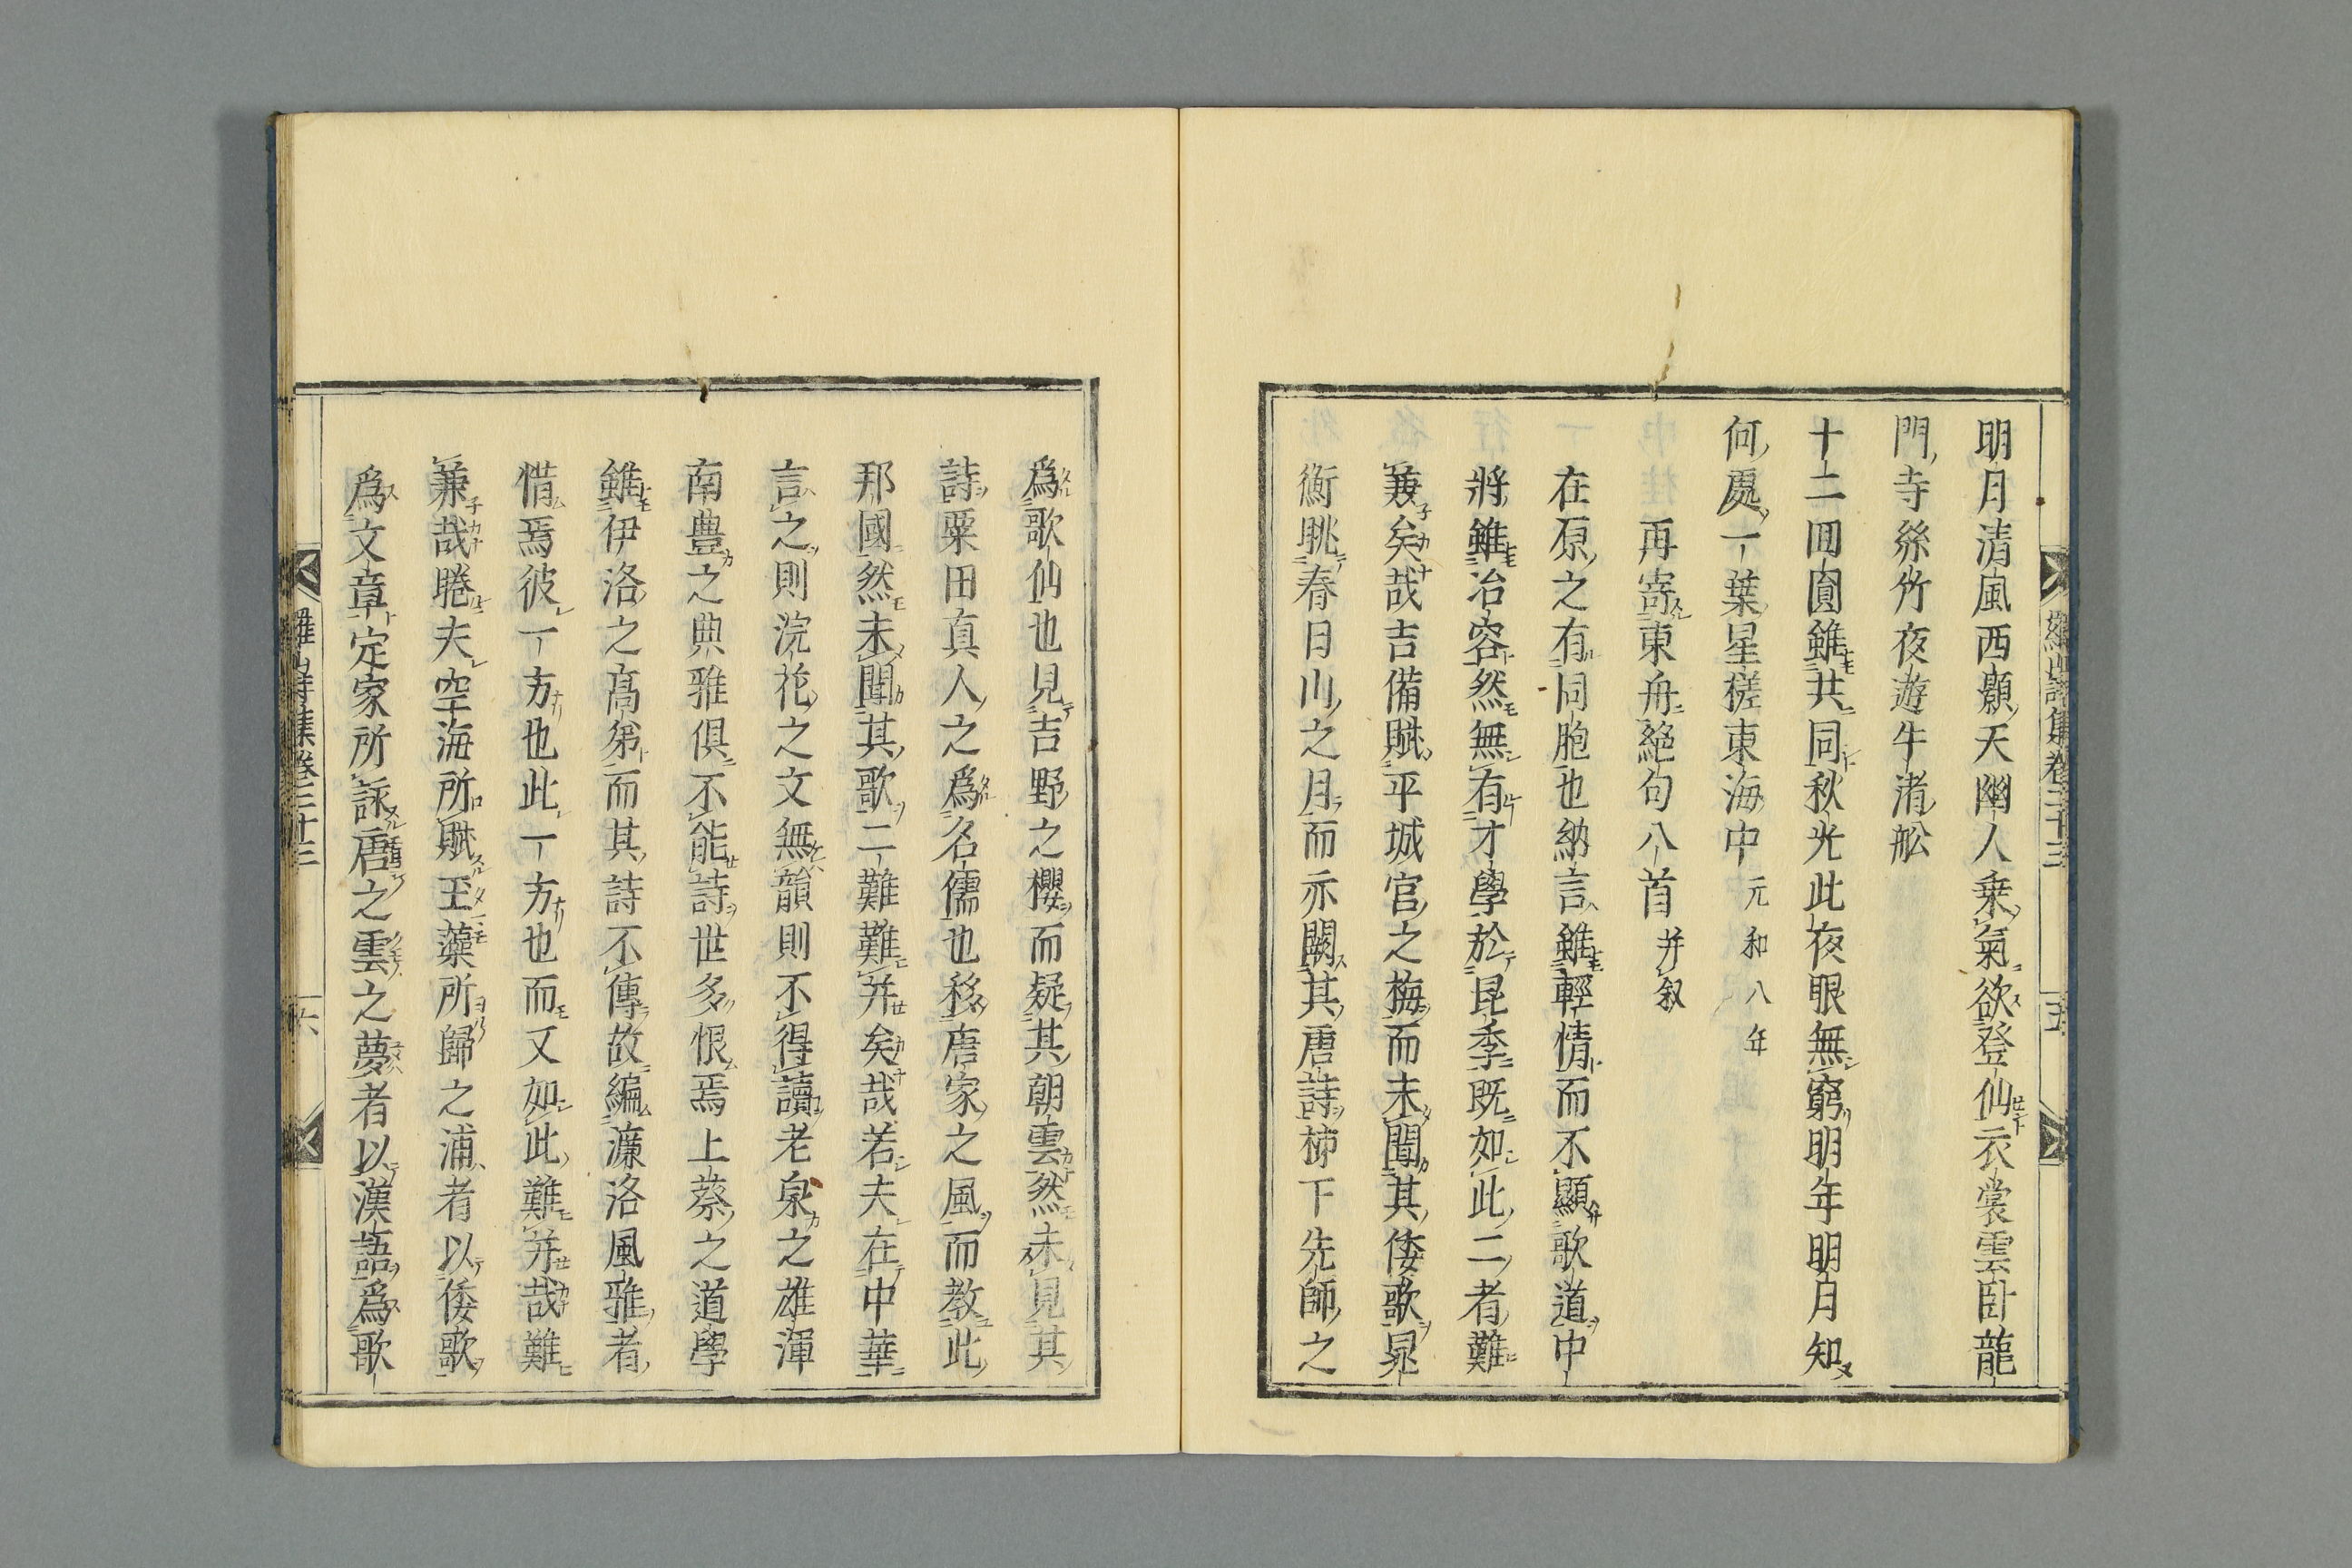 明月清風西顥天幽人乗氣欲登仙衣裳雲卧龍
門寺絲竹夜遊牛渚舩
十二囬圓雖共同秋光此夜眼無窮明年明月知
何處一葉星槎東海中元和八年
再寄東舟絕句八首并叙
在原之有同胞也納言雖輕情而不顯歌道中
將雖冶容然無有才學於昆季既如此二者難
兼矣哉吉備賦平城宮之梅而未聞其倭歌晁
衡眺春日山之月而亦闕其唐詩柿下先師之
爲歌仙也見吉野之櫻而疑其朝雲然未見其
詩粟田真人之爲名儒也移唐家之風而教此
邦國然未聞其歌二難難并矣哉若夫在中華
言之則浣花之文無韻則不得讀老泉之雄渾
南豊之典雅俱不能詩世多恨焉上蔡之道學
雖伊洛之高弟而其詩不傳故編濂洛風雅者
惜焉彼一方也此一方也而又如此難并哉難
兼哉睠夫空海所賦玉藻所歸之浦者以倭歌
爲文章定家所詠唐之雲之夢者以漢語爲歌
羅山詩集卷三十三
五
羅山詩集卷三十三
六